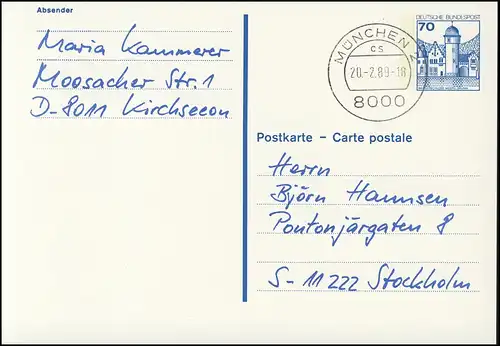 Absender
Maria Kammerer
Moosacher Str. 1
D-8011 Kirchseeon
MÜNCHEN 2
cs
20.-2.89-16
8000
DEUTSCHE BUNDESPOST
70
Postkarte – Carte postale
Herrn
Björn Hannsen
Pontonjärgaten 8
S-11222 Stockholm